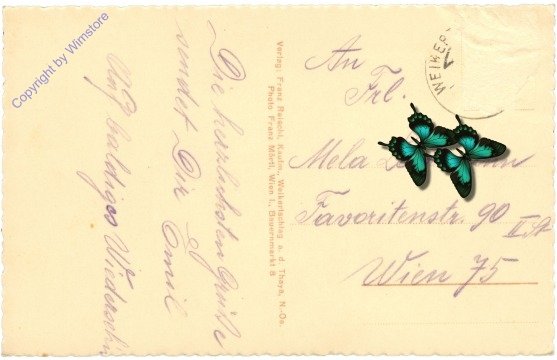 Copyright by Wimstore
Die herzlichsten Grüße
sendet Dir
Emil
Auf baldiges Wiedersehn
Verlag: Franz Reischl, Kaufm., Weikertschlag a. d. Thaya, N.-Oe.
Photo Franz Mörtl, Wien I., Bauernmarkt 8
WEIKER
An
Frl.
Mela
Favoritenstr. 90
II. St
Wien 75